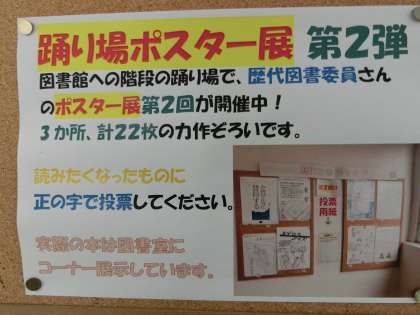 踊り場ポスター展 第2弾
図書館への階段の踊り場で、歴代図書委員さん
のポスター展第2回が開催中！
3か所、計22枚の力作ぞろいです。
読みたくなったものに
正の字で投票してください。
実際の本は図書室に
コーナー展示しています。
投票
用紙